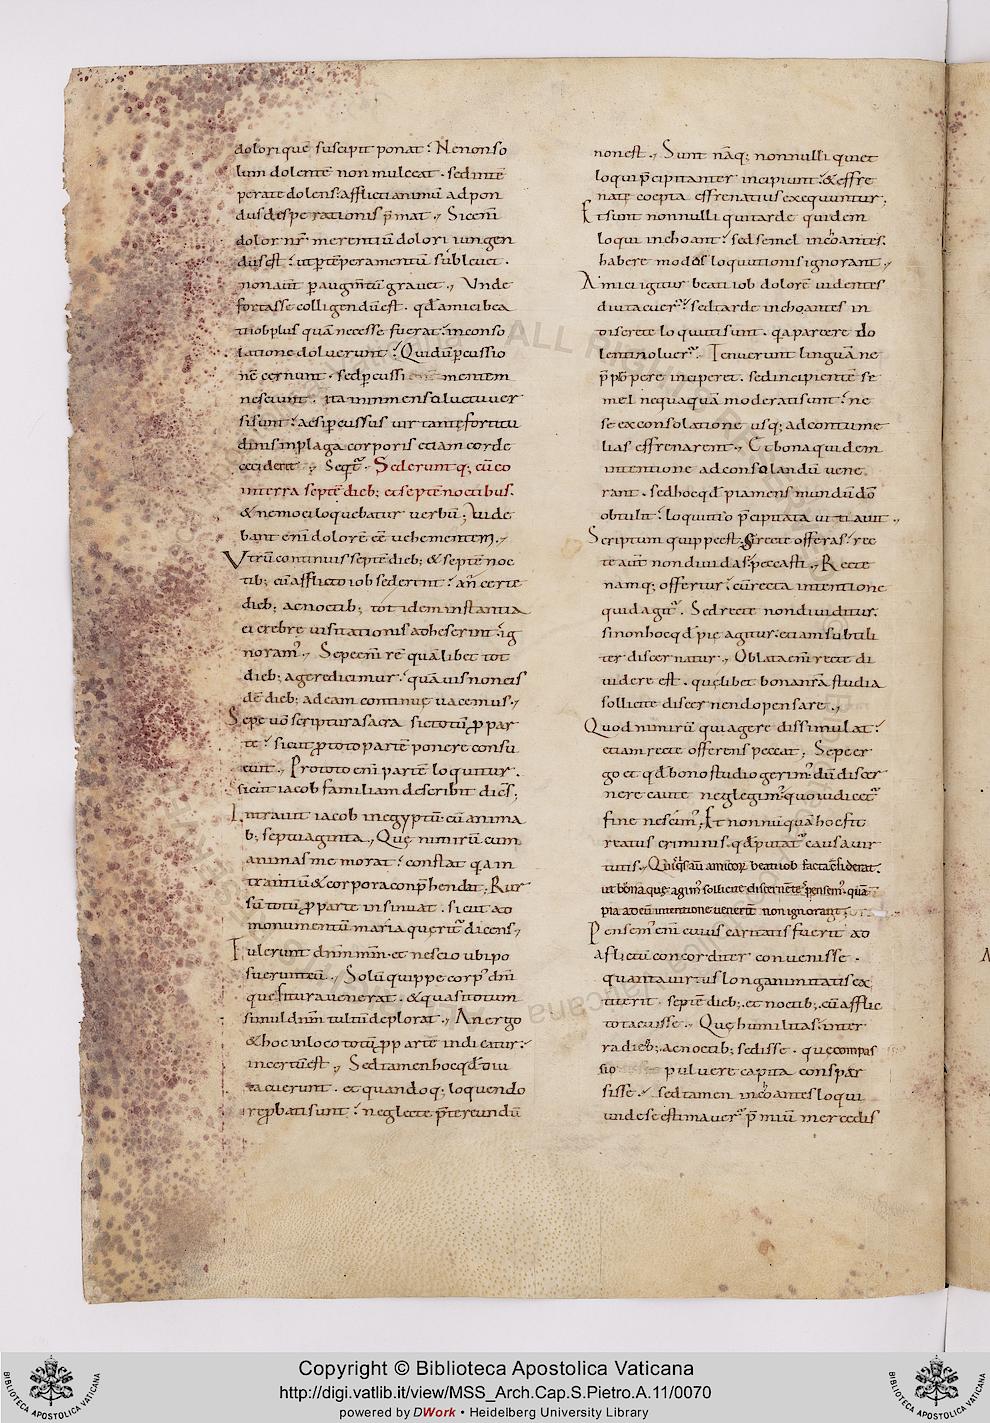 dolorique suscipit ponat? Ne non so
lum dolentē non mulceat · sed inte
perate dolens: afflicti animū ad pon
dus desperationis p̄mat ., Sic enī
dolor nr̄ merentiū dolori iungen
dus est? ut ꝑ tēperamentū subleuet ·
non aūt ꝑ augmtū grauet ., Vnde
fortasse colligendū est · qd̄ amici bea
ti iob plus quā necesse fuerat? in conso
latione doluerunt? Qui dū ꝑcussio
nē cernunt · sed ꝑcussi mentem
nesciunt · ita in inmensa luctu uer
si sunt? ac si ꝑcussus uir tantę fortitu
dinis in plaga corporis etiam corde
cecidisset ., Seqt̄ · Sederunt q; cū eo
in terra septē dieb; et septē noctibus.
& nemo ei loquebatur uerbū; Vide
bant enī dolorē eē uehementem .,
Vtrū continuis septē dieb; & septē noc
tib; cū afflicto iob sederint? an̄ certe
dieb; ac noctib; totidem instantia
ei crebrę uisitationis adheserint? ig
noram᾽., Sepe enī rē quālibet tot
dieb; agere dicimur? quāuis non eis
dē dieb; ad eam continuę uacemus .,
Sepe uō scriptura sacra sic totū ꝓ par
te? sicut ꝓ toto partē ponere consu
euit ., Pro toto enī partē loquitur ·
sicut iacob familiam describit dicēs;
Intrauit iacob in egyptū cū anima
b; septuaginta ., Quę nimirū cum
animas memorat? constat qa in
trantiū & corpora conp̄hendit; Rur
sū totū ꝓ parte insinuat · sicut ad
monumentū maria querit dicens .,
Tulerunt dn̄m mm̄ · et nescio ubi po
suerunt eū ., Solū quippe corp᾽ dn̄i
quesitura uenerat · & quasi totum
simul dnm̄ tultū deplorat ., An ergo
& hoc in loco totū ꝓ parte indicatur?
incertū est ., Sed tamen hoc qd̄ diu
tacuerunt · et quandoq; loquendo
reꝓbati sunt? neglecte p̄tereundū
non est ., Sunt nāq; nonnulli qui et
loqui p̄cipitanter incipiunt? & effre
natę coepta effrenatius exequuntur;
Et sunt nonnulli qui tarde quidem
loqui inchoant? sed semel inchoantes.
habere modos loquutionis ignorant .,
Amici igitur beati iob dolorē uidentes
diu tacuer̄? sed tarde inchoantes in
discrete loquuti sunt · qa parcere do
lenti noluer̄. Tenuerunt linguā ne
p̄ppere inciperet · sed incipientē se
mel nequaquā moderati sunt? ne
se ex consolatione usq; ad contume
lias effrenarent ., Et bona quidem
intentione ad consolandū uene
rant · sed hoc qd̄ pia mens mundū dō
obtulit? loquutio p̄cipitata uitiauit .,
Scriptum quippe est; Si recte offeras? rec
te aūt non diuidas? peccasti ., Recte
namq; offertur? cū recta intentione
quid agit᾽. Sed recte non diuiditur.
si non hoc qd̄ pie agitur · etiam subtili
ter discernatur ., Oblata enī recte di
uidere est · quęlibet bona nr̄a studia
sollicite discernendo pensare .,
Quod nimirū qui agere dissimulat?
etiam recte offerens peccat; Sepe er
go et qd̄ bono studio gerim᾽ dū discer
nere caute neglegim᾽ quo iudicet᾽
fine nescim᾽; Et nonnūquā hoc fit
reatus criminis · qd̄ putat᾽ causa uir
tutis ., Quisquis aū amicor̄ beati iob facta cōsiderat.
ut bona que agim᾽ sollicite discernente pensem᾽ · quā
pia ad eū intentione uenerit non ignorant
Pensem᾽ enī cuius caritatis fuerit ad
aflictū concorditer conuenisse ·
quanta uirtus longanimitatis ex
titerit · septē dieb; et noctib; cū afflic
to tacuisse ., Quę humilitas? inter
ra dieb; ac noctib; sedisse · quę compas
sio puluere capita conspar
sisse ., sed tamen inchoantes loqui
unde se estimauer̄ p̄miū mercedis
ALL RIGHTS RESERVED
Copyright © Biblioteca Apostolica Vaticana
http://digi.vatlib.it/view/MSS_Arch.Cap.S.Pietro.A.11/0070
powered by DWork • Heidelberg University Library
BIBLIOTECA APOSTOLICA VATICANA
BIBLIOTECA APOSTOLICA VATICANA